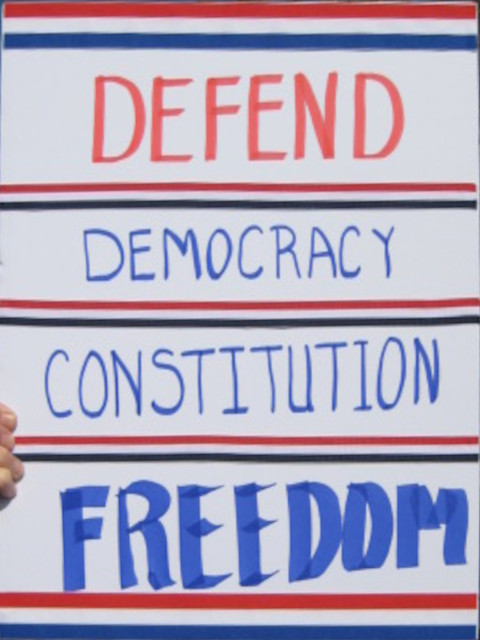 DEFEND
DEMOCRACY
CONSTITUTION
FREEDOM